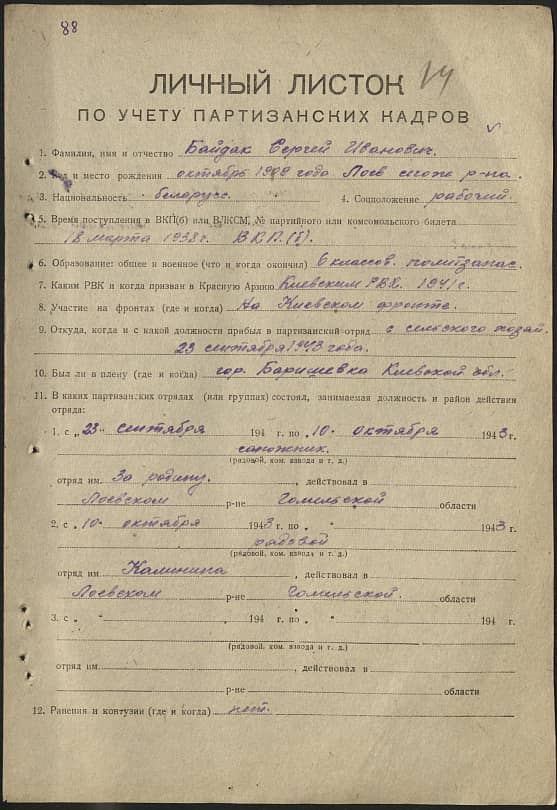 88
14
ЛИЧНЫЙ ЛИСТОК
ПО УЧЕТУ ПАРТИЗАНСКИХ КАДРОВ
1. Фамилия, имя и отчество Байдак Сергей Иванович.
2. Год и место рождения октябрь 1909 года Лоев р-на.
3. Национальность белорусс. 4. Соцположение рабочий.
5. Время поступления в ВКП(б) или ВЛКСМ, № партийного или комсомольского билета
18 марта 1938 г. ВКП(б).
6. Образование: общее и военное (что и когда окончил) 6 классов. политзапас.
7. Каким РВК и когда призван в Красную Армию Киевским РВК. 1941 г.
8. Участие на фронтах (где и когда) На Киевском фронте.
9. Откуда, когда и с какой должности прибыл в партизанский отряд с сельского хозяй.
23 сентября 1943 года.
10. Был ли в плену (где и когда) гор. Баришевка Киевской обл.
11. В каких партизанских отрядах (или группах) состоял, занимаемая должность и район действия
отряда:
1. с „23„ сентября 194 г. по „10„ октября 1943 г.
сапожник.
(рядовой, ком. взвода и т. д.)
отряд им. За родину. , действовал в
Лоевском р-не Гомильской области
2. с „10„ октября 1943 г. по „ „ 1943 г.
рядовой
(рядовой, ком. взвода и т. д.)
отряд им. Калинина , действовал в
Лоевском р-не Гомильской. области
3. с „ „ 194 г. по „ „ 194 г.
(рядовой, ком. взвода и т. д.)
отряд им. , действовал в
р-не области
12. Ранения и контузии (где и когда) нет.